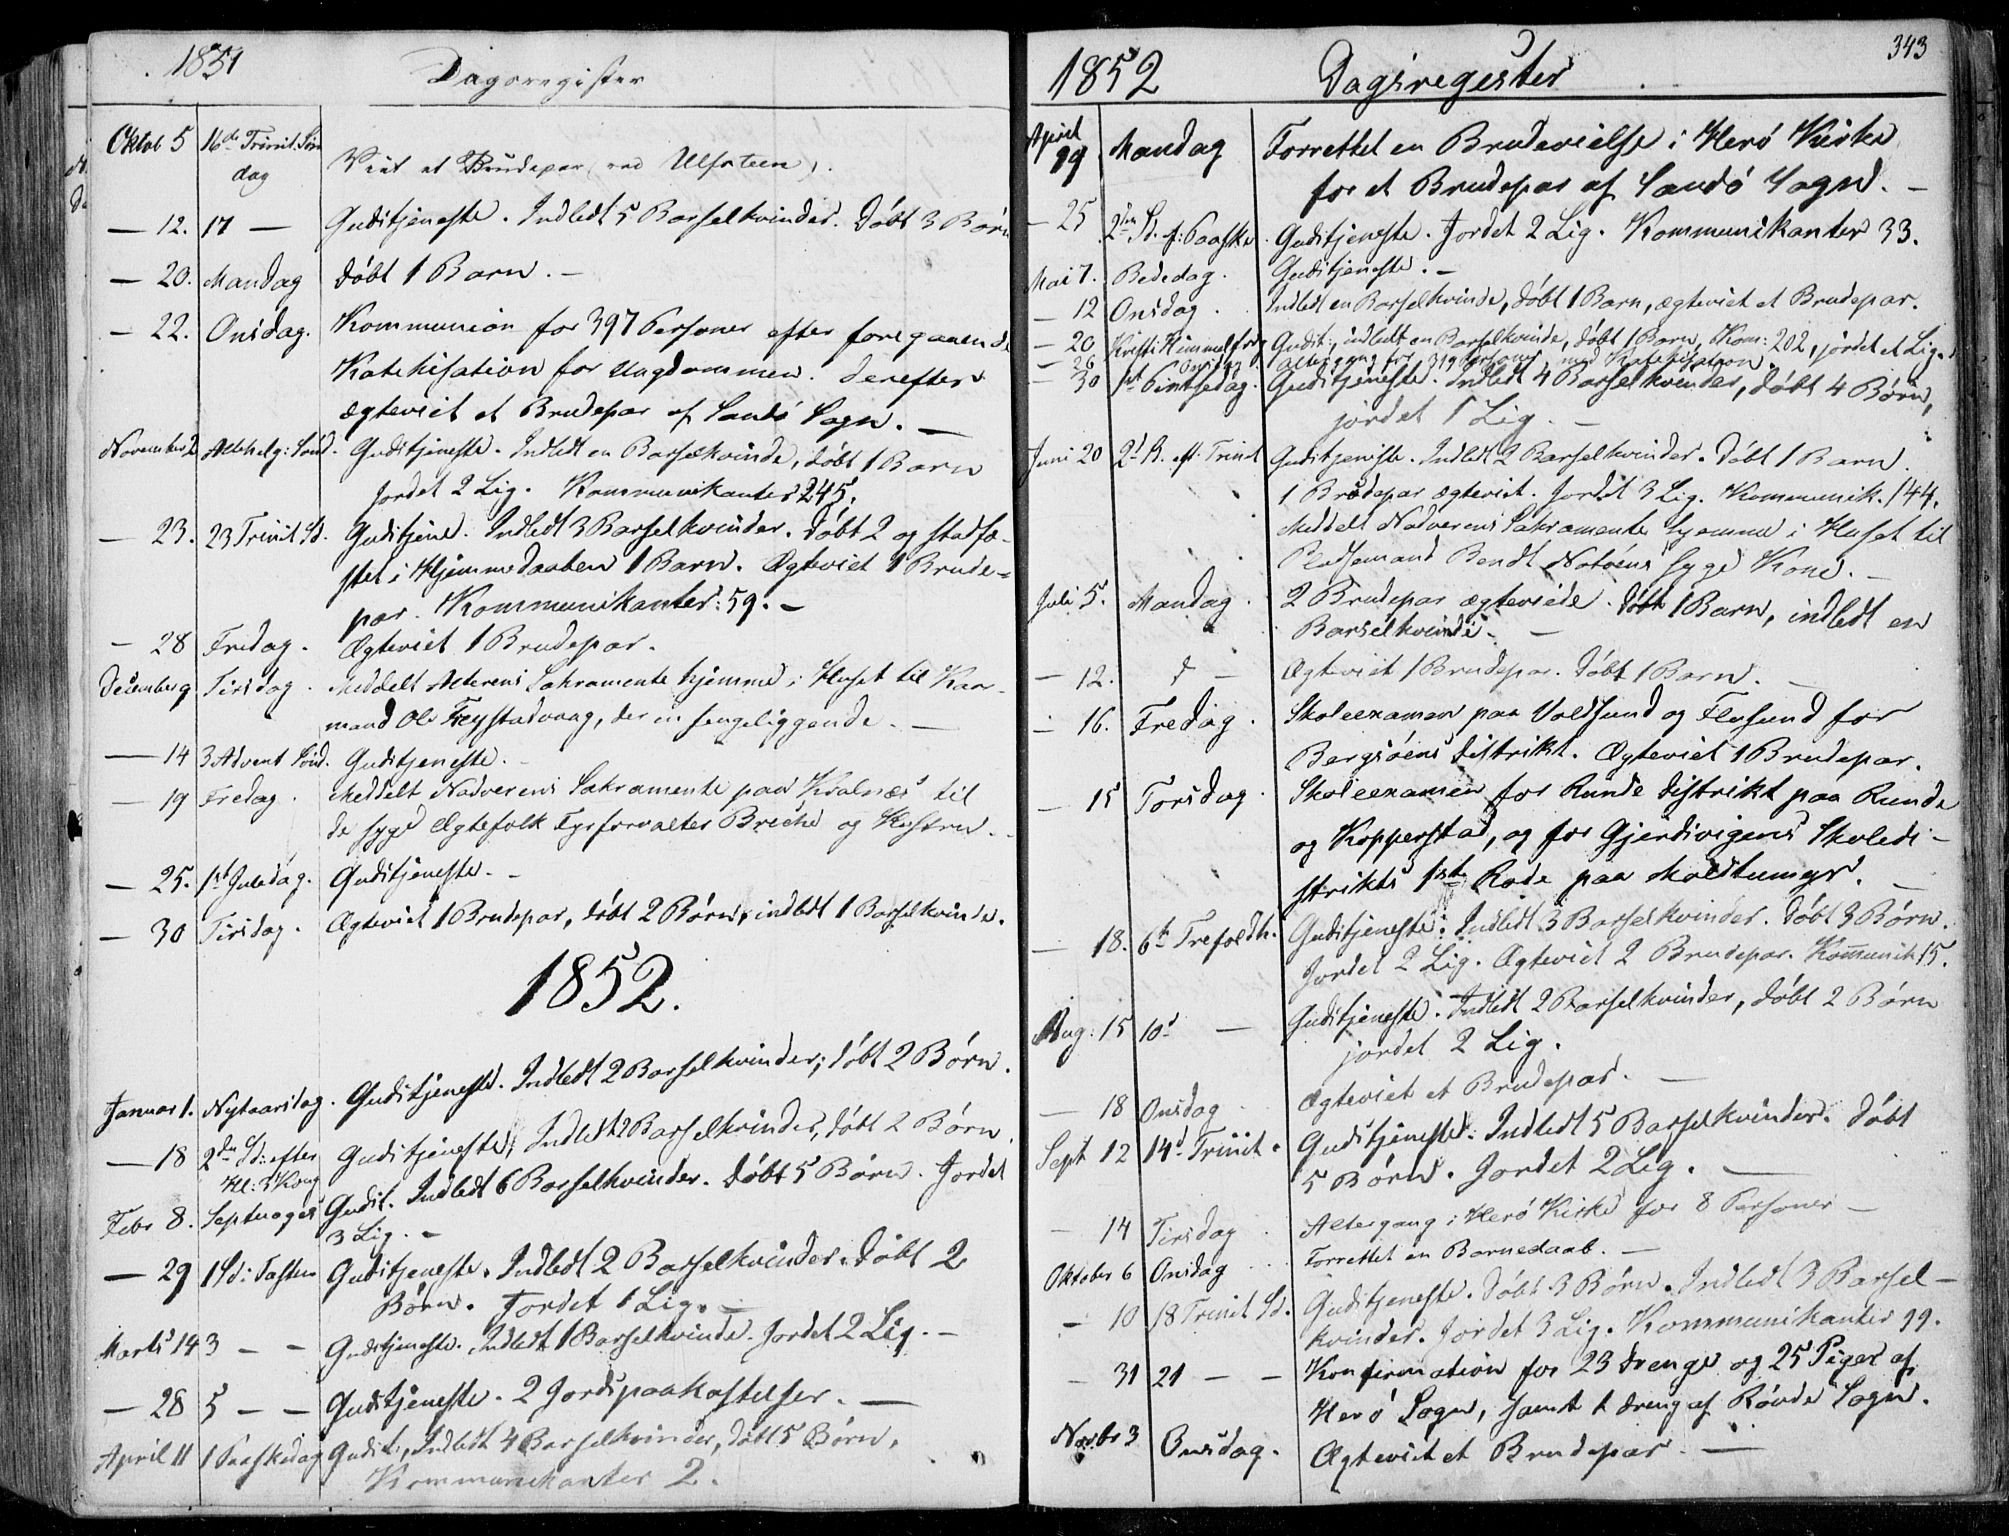 1851 Dagsregister
Oktob 5 16de Trinit. Søn
dag Viet et Brudepar (ved Ulfsteen).
— 12. 17 — Gudstjeneste. Indledt 5 Barselkvinder. Døbt 3 Børn
— 20. Mandag Døbt 1 Barn. —
— 22. Onsdag. Kommunion for 397 Personer efter foregaaende
Katekisation for Ungdommen. Derefter
ægteviet et Brudepar af Sandø Sogn. —
November 2 Allehelg: Sønd. Gudstjeneste. Indledt en Barselkvinde, døbt 1 Barn
Jordet 2 Lig. Kommunikanter 245.
— 23. 23 Trinit Sd. Gudstjene. Indledt 3 Barselkvinder. Døbt 2 og stadfæ-
stet i Hjemmedaaben 1 Barn. Ægteviet 1 Brude-
par. Kommunikanter: 59. —
— 28 Fredag. Ægteviet 1 Brudepar.
December 9 Tirsdag. Meddelt Alterens Sakramente hjemme i Huset til Kaar-
mand Ole Frystadvaag, der er sengeliggende. —
— 14 3 Advent Sønd. Gudstjeneste.
— 19 Fredag. Meddelt Nadverens Sakramente paa Kvalnæs til
de syge Ægtefolk Fyrforvalter Briche og Hustru.
— 25. 1st Juledag. Gudstjeneste. —
— 30 Tirsdag. Ægteviet 1 Brudepar, døbt 2 Børn, indledt 1 Barselkvinde.
1852.
Januar 1. Nytaarsdag. Gudstjeneste. Indledt 2 Barselkvinder; døbt 2 Børn.
— 18 2den Sd: efter Gudstjeneste, Indledt 2 Barselkvinder, døbt 2 Børn.
Hl: 3 Kong
Febr 8. Septuages Gudst. Indledt 6 Barselkvinder. Døbt 5 Børn. Jordet
3 Lig. —
— 29 1 Sd i Fasten Gudstjeneste. Indledt 2 Barselkvinder. Døbt 2
Børn. Jordet 1 Lig. —
Marts 14 3 — — Gudstjeneste. Indledt 1 Barselkvinde. Jordet 2 Lig. —
— 28 5 — — Gudstjeneste. 2 Jordspaakastelser. —
April 11 1 Paaskedag Gudst., Indledt 4 Barselkvinder, døbt 5 Børn,
Kommunikanter 2.
1852 Dagsregister 343
April
19 Mandag Forrettet en Brudevielse i Herø Kirke
for et Brudepar af Sandø Sogn. —
— 25 2den Sd. f: Paaske. Gudstjeneste. Jordet 2 Lig. Kommunikanter 33.
Mai 7. Bededag. Gudstjeneste. —
— 12 Onsdag. Indledt en Barselkvinde, døbt 1 Barn, ægteviet et Brudepar.
— 20 Kristi Himmelfrdg Gudst., indledt en Barselkvinde, døbt 1 Barn, Kom: 202, jordet et Lig.
— 26 Onsdag. Altergang for 319 Personer med Katekisation
— 30 1st Pintsedag. Gudstjeneste. Indledt 4 Barselkvinder, døbt 4 Børn,
jordet 1 Lig. —
Juni 20 2d S. eft. Trinit Gudstjeneste. Indledt 2 Barselkvinder. Døbt 1 Barn.
1 Brudepar ægteviet. Jordet 3 Lig. Kommunik. 144.
Meddelt Nadverens Sakramente hjemme i Huset til
Pladsemand Bendt Notøens syge Kone. —
Juli 5. Mandag. 2 Brudepar ægteviede. Døbt 1 Barn, indledt en
Barselkvinde. —
— 12. d — Ægteviet 1 Brudepar. Døbt 1 Barn. —
— 16. Fredag. Skoleexamen paa Voldsund og Flosund for
Bergsøens Distrikt. Ægteviet 1 Brudepar.
— 15 Torsdag. Skoleexamen for Runde Distrikt paa Runde
og Kopperstad, og for Gjerdsvigens Skoledi-
strikts 1ste Rode paa Moldtumyr. —
— 18. 6te Trefoldh. Gudstjeneste. Indledt 3 Barselkvinder. Døbt 3 Børn.
Jordet 2 Lig. Ægteviet 2 Brudepar. Kommunik 15.
Aug: 15 10d — Gudstjeneste. Indledt 2 Barselkvinder, døbt 2 Børn
jordet 2 Lig.
— 18 Onsdag Ægteviet et Brudepar. —
Sept 12 14d Trinit. Gudstjeneste. Indledt 5 Barselkvinder. Døbt
5 Børn. Jordet 2 Lig. —
— 14 Tirsdag. Altergang i Herø Kirke for 8 Personer —
Oktober 6 Onsdag Forrettet en Barnedaab. —
— 10 18 Trinit Sd. Gudstjeneste. Døbt 3 Børn. Indledt 3 Barsel-
kvinder. Jordet 3 Lig. Kommunikanter 99.
— 31 21 — — Konfirmation for 23 Drenge og 25 Piger af
Herø Sogn, samt 1 Dreng af Røvde Sogn.
Novbr 3 Onsdag. Ægteviet et Brudepar. —